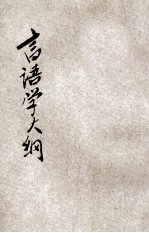 言语学大纲